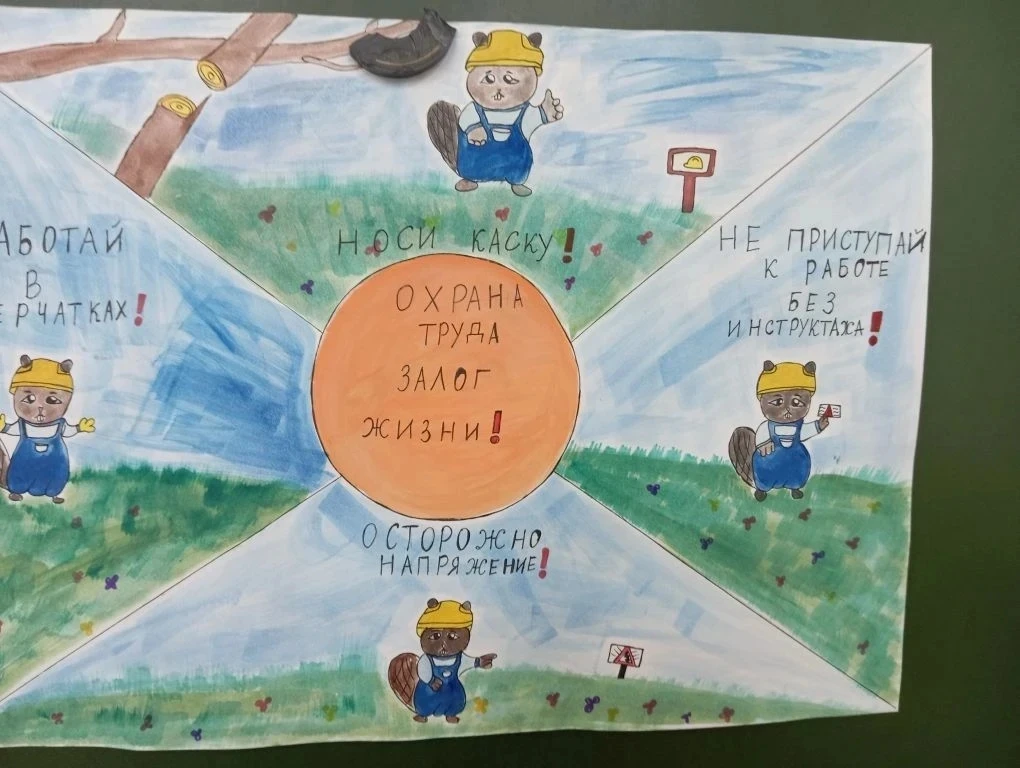 НОСИ КАСКУ!
АБОТАЙ
В
ЕРЧАТКАХ!
ОХРАНА
ТРУДА
ЗАЛОГ
ЖИЗНИ!
НЕ ПРИСТУПАЙ
К РАБОТЕ
БЕЗ
ИНСТРУКТАЖА!
ОСТОРОЖНО
НАПРЯЖЕНИЕ!